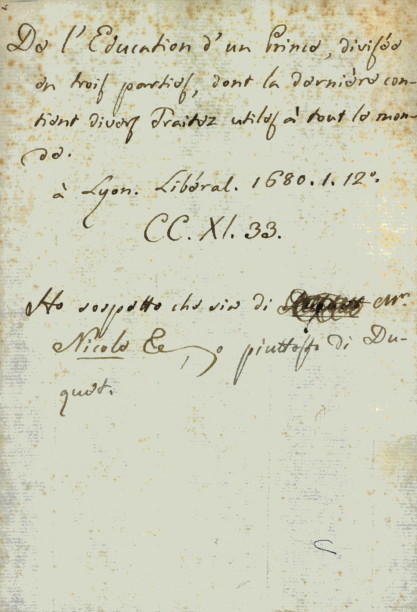 De l'Education d'un Prince, divisée
en trois parties, dont la derniére con-
tient divers Traitez utiles à tout le mon-
de.
à Lyon. Libéral. 1680. 1. 12°.
CC. XI. 33.
Ho sospetto che sia di Mr
Nicole &c, o piuttosto di Du-
guet.